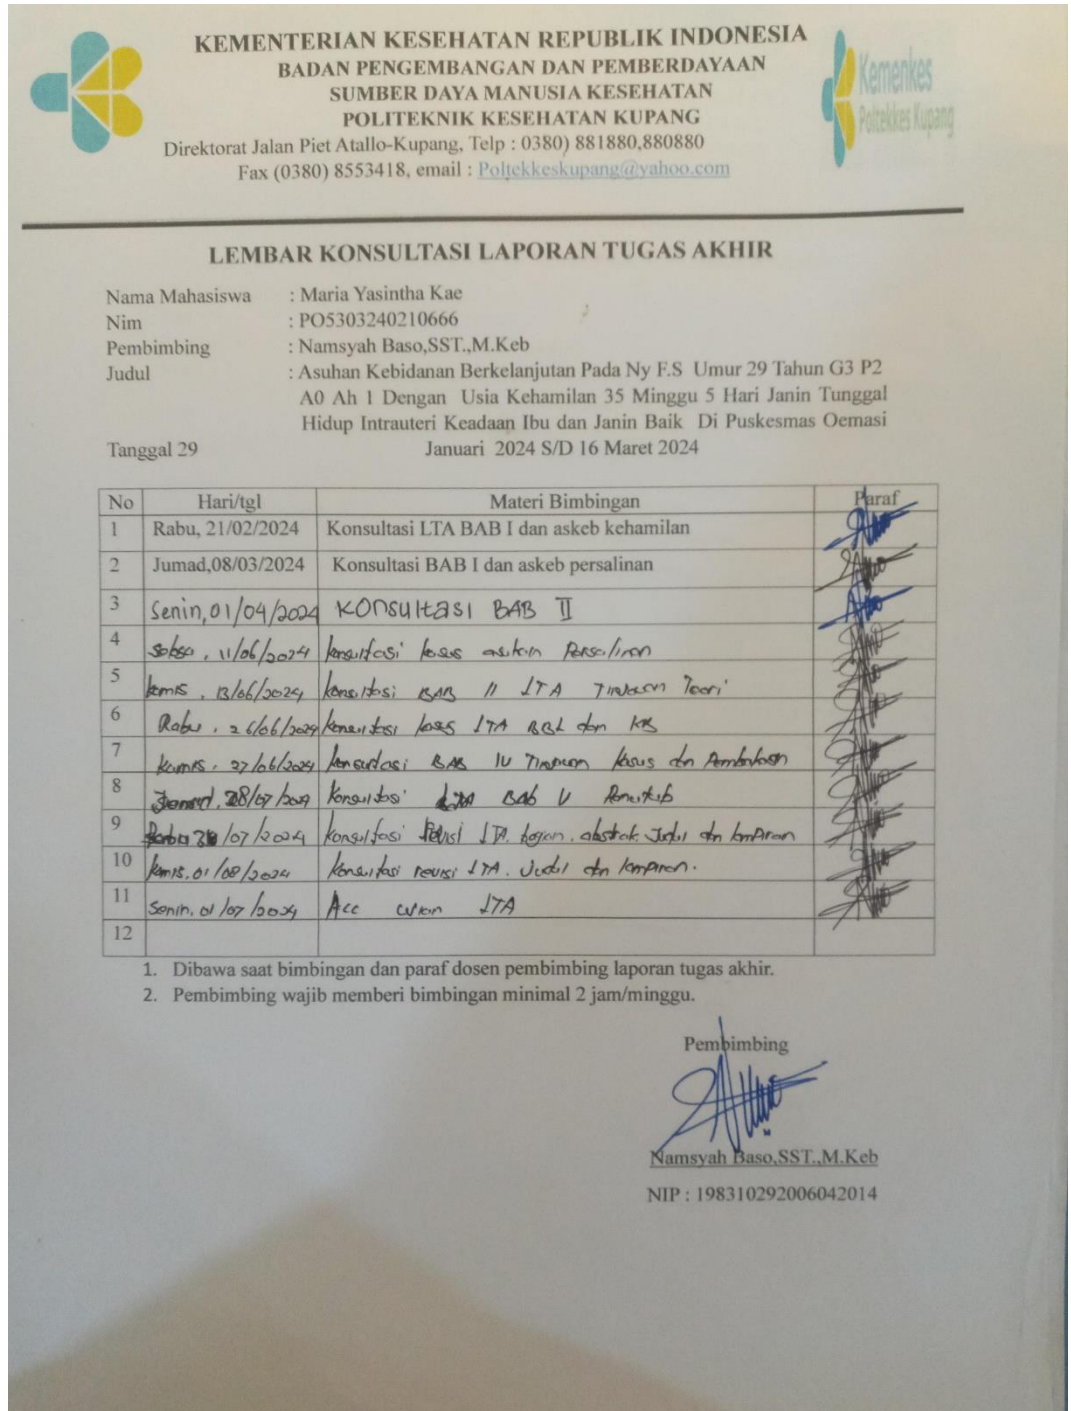 KEMENTERIAN KESEHATAN REPUBLIK INDONESIA
BADAN PENGEMBANGAN DAN PEMBERDAYAAN
SUMBER DAYA MANUSIA KESEHATAN
POLITEKNIK KESEHATAN KUPANG
Direktorat Jalan Piet Atallo-Kupang, Telp : 0380) 881880,880880
Fax (0380) 8553418, email : Poltekkeskupang@yahoo.com
Kemenkes
Poltekkes Kupang
LEMBAR KONSULTASI LAPORAN TUGAS AKHIR
Nama Mahasiswa : Maria Yasintha Kae
Nim : PO5303240210666
Pembimbing : Namsyah Baso,SST.,M.Keb
Judul : Asuhan Kebidanan Berkelanjutan Pada Ny F.S Umur 29 Tahun G3 P2
A0 Ah 1 Dengan Usia Kehamilan 35 Minggu 5 Hari Janin Tunggal
Hidup Intrauteri Keadaan Ibu dan Janin Baik Di Puskesmas Oemasi
Tanggal 29 Januari 2024 S/D 16 Maret 2024
No Hari/tgl Materi Bimbingan Paraf
1 Rabu, 21/02/2024 Konsultasi LTA BAB I dan askeb kehamilan
2 Jumad,08/03/2024 Konsultasi BAB I dan askeb persalinan
3 Senin,01/04/2024 Konsultasi BAB II
4 11/06/2024 konsultasi kasus asuhan Persalinan
5 kamis, 13/06/2024 konsultasi BAB II LTA Tinjauan Teori
6 Rabu, 26/06/2024 konsultasi kasus LTA BBL dan KB
7 Kamis, 27/06/2024 konsultasi BAB IV Tinjauan Kasus dan Pembahasan
8 28/07/2024 Konsultasi LTA Bab V Penutup
9 /07/2024 konsultasi Revisi LTA. bagian. abstrak. Judul dan lampiran
10 kamis. 01/08/2024 konsultasi revisi LTA. Judul dan lampiran.
11 Senin. 01/07/2024 Acc LTA
12
1. Dibawa saat bimbingan dan paraf dosen pembimbing laporan tugas akhir.
2. Pembimbing wajib memberi bimbingan minimal 2 jam/minggu.
Pembimbing
Namsyah Baso,SST.,M.Keb
NIP : 198310292006042014